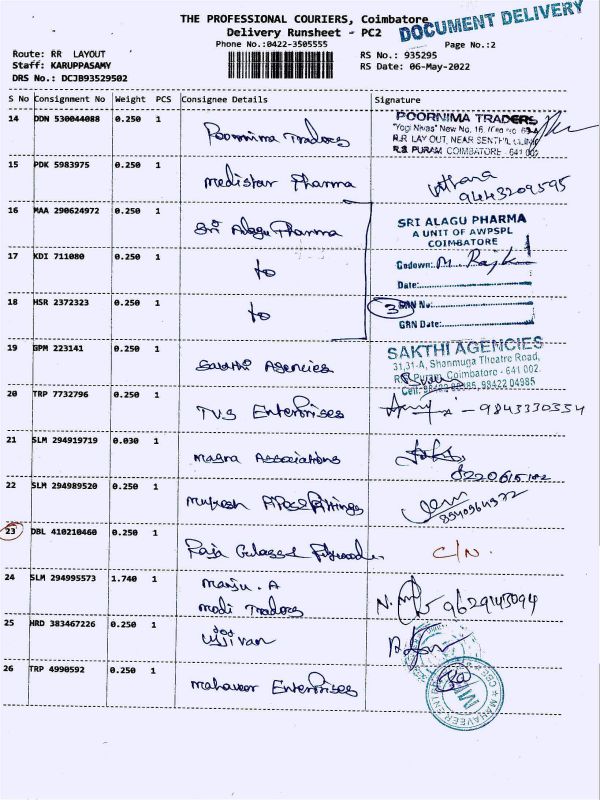 THE PROFESSIONAL COURIERS, Coimbatore
DOCUMENT DELIVERY
Delivery Runsheet - PC2
Phone No.:0422-3505555
Page No.:2
Route: RR LAYOUT
RS No.: 935295
Staff: KARUPPASAMY
RS Date: 06-May-2022
DRS No.: DCJB93529502
S No Consignment No Weight PCS Consignee Details Signature
14 DDN 530044088 0.250 1 Poornima Traders
POORNIMA TRADERS
"Yogi Nivas" New No. 16,
R.R LAY OUT, NEAR SENTHIL CLINIC
R.S PURAM COIMBATORE - 641 002
15 PDK 5983975 0.250 1 Medistar Pharma
9443209595
16 MAA 290624972 0.250 1 Sri Alagu Pharma
SRI ALAGU PHARMA
A UNIT OF AWPSPL
COIMBATORE
17 KDI 711080 0.250 1 to
Godown:
Date:
18 HSR 2372323 0.250 1 to
3
GRN No:
GRN Date:
19 GPM 223141 0.250 1 Sakthi Agencies
SAKTHI AGENCIES
31,31-A, Shanmuga Theatre Road,
R.S. Puram, Coimbatore - 641 002.
Cell: 98422 04985
20 TRP 7732796 0.250 1 TVS Enterprises
9843330334
21 SLM 294919719 0.030 1 Magna Associations
22 SLM 294989520 0.250 1 Mukesh
23 DBL 410210460 0.250 1 Raja
C/N.
24 SLM 294995573 1.740 1 Manju . A
Modi Traders
9629143094
25 HRD 383467226 0.250 1 Ujjivan
26 TRP 4990592 0.250 1 Mahaveer Enterprises